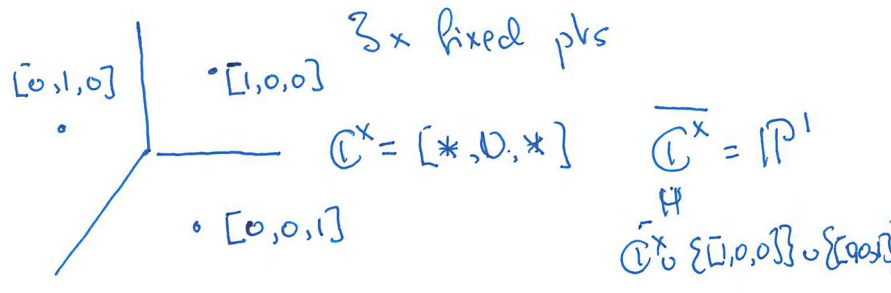 3x fixed pts
[0,1,0]
[1,0,0]
ℂ^× = [*,0,*]
\overline{ℂ^×} = ℙ^1
[0,0,1]
ℂ^× ∪ {[1,0,0]} ∪ {[0,0,1]